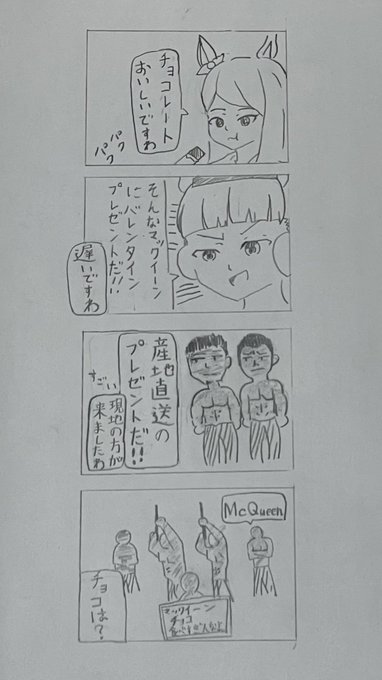 チョコレート
おいしいですわ
パク
パク
そんなマックイーン
にバレンタイン
プレゼントだ!!
遅いですわ
産地直送の
プレゼントだ!!
すごい
現地の方が
来ましたわ
McQueen
マックイーン
チョコ
チョコは?